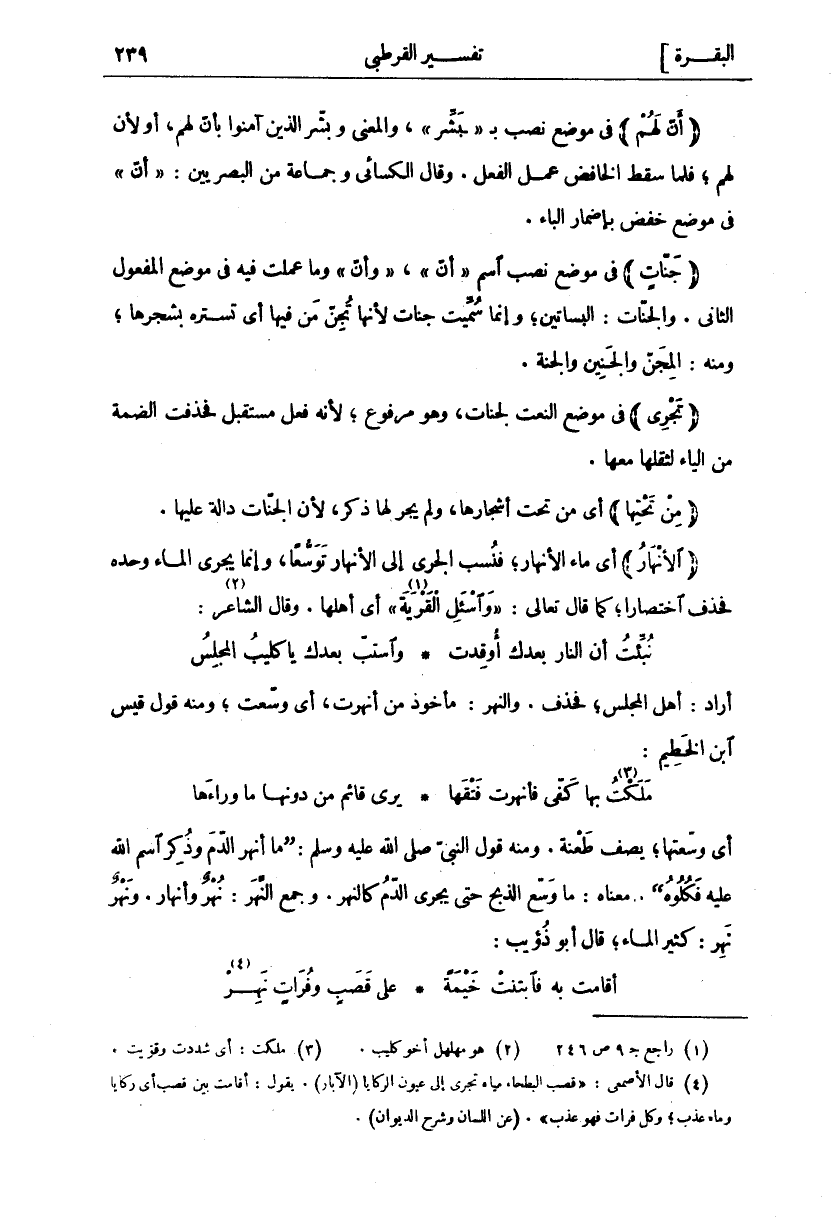 البقرة ] تفسير القرطبى ٢٣٩
﴿ أَنَّ لَهُمْ ﴾ فى موضع نصب بـ « بَشِّر » ، والمعنى وبشّر الذين آمنوا بأنّ لهم، أو لأن
لهم ؛ فلما سقط الخافض عمل الفعل . وقال الكسائى وجماعة من البصريين : « أنّ »
فى موضع خفض بإضمار الباء .
﴿ جَنَّاتٍ ﴾ فى موضع نصب ٱسم « أنّ » ، « وأنّ » وما عملت فيه فى موضع المفعول
الثانى . والجنّات : البساتين؛ وإنما سُمِّيت جنات لأنها تُجِنّ مَن فيها أى تستره بشجرها ؛
ومنه : المِجَنّ والجَنِين والجنة .
﴿ تَجْرِى ﴾ فى موضع النعت لجنات، وهو مرفوع ؛ لأنه فعل مستقبل فحذفت الضمة
من الياء لثقلها معها .
﴿ مِنْ تَحْتِهَا ﴾ أى من تحت أشجارها، ولم يجر لها ذكر، لأن الجنّات دالة عليها .
﴿ ٱلْأَنْهَارُ ﴾ أى ماء الأنهار؛ فنُسب الجرى إلى الأنهار تَوَسُّعًا، وإنما يجرى الماء وحده
فحذف ٱختصارا؛ كما قال تعالى : «وَٱسْئَلِ الْقَرْيَةَ» (١) أى أهلها . وقال الشاعر (٢) :
نُبِّئتُ أن النار بعدك أُوقِدت * وٱستبّ بعدك ياكليبُ المجلِسُ
أراد : أهل المجلس؛ فحذف . والنهر : مأخوذ من أنهرت، أى وسّعت ؛ ومنه قول قيس
ٱبن الخَطِيم :
مَلَكْتُ (٣) بها كَفّى فأنهرت فَتْقَها * يرى قائم من دونها ما وراءَها
أى وسّعتها؛ يصف طَعْنة . ومنه قول النبىّ صلى الله عليه وسلم : ”ما أنهر الدّمَ وذُكِر ٱسم الله
عليه فَكُلُوهُ“ . معناه : ما وَسّع الذبح حتى يجرى الدّمُ كالنهر . وجمع النَّهَر : نُهْرٌ وأنهار . ونَهْرٌ
نَهِر : كثير الماء؛ قال أبو ذُؤيب :
أقامت به فٱبتنتْ خَيْمَةً * على قَصَبٍ وفُرَاتٍ نَهِرْ (٤)
(١) راجع جـ ٩ ص ٢٤٦ (٢) هو مهلهل أخو كليب . (٣) ملكت : أى شددت وقوّيت .
(٤) قال الأصمعى : «قصب البطحاء مياه تجرى إلى عيون الركايا (الآبار) . يقول : أقامت بين قصب أى ركايا
وماء عذب؛ وكل فرات فهو عذب» . (عن اللسان وشرح الديوان) .